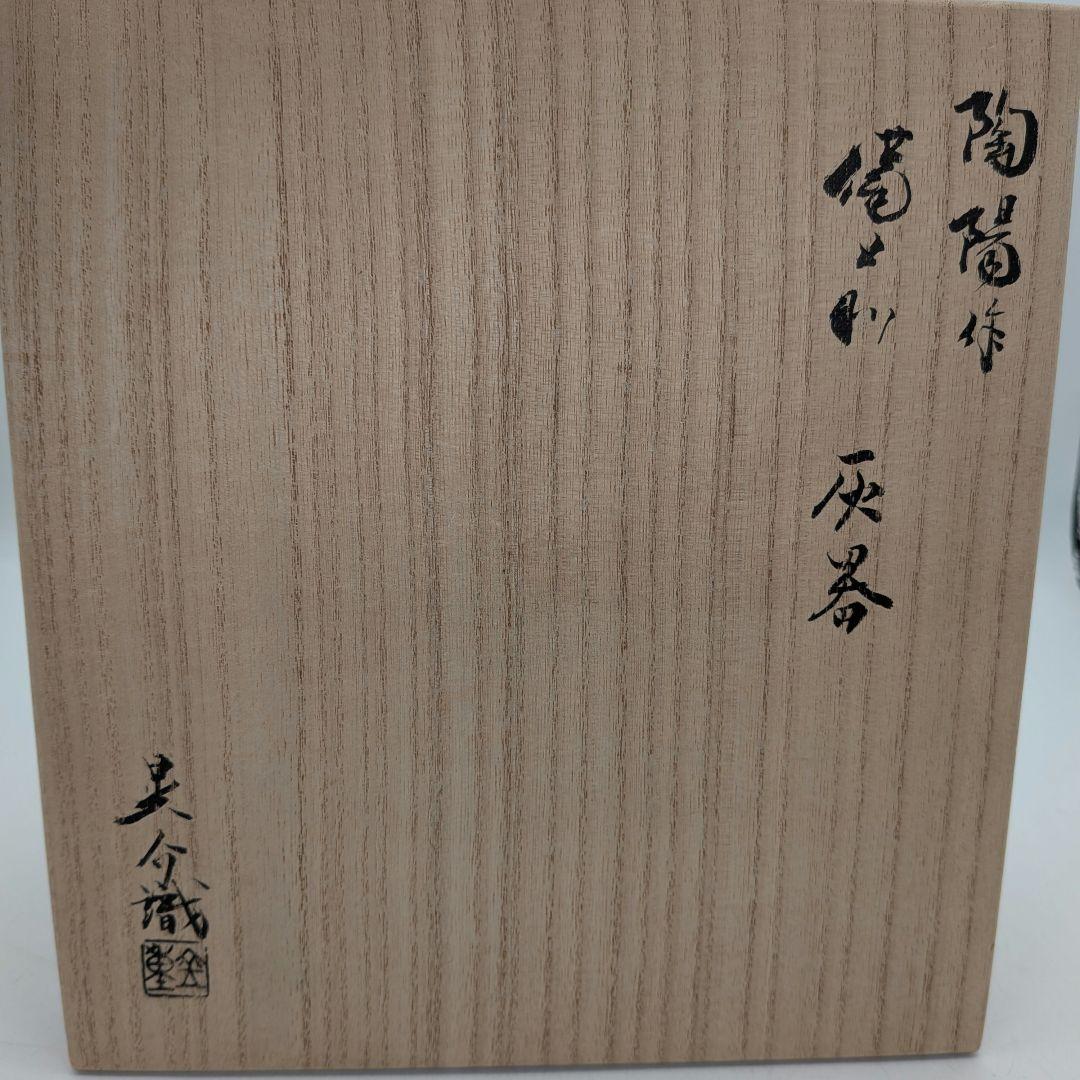 陶陽作
備前 灰器
晃介識